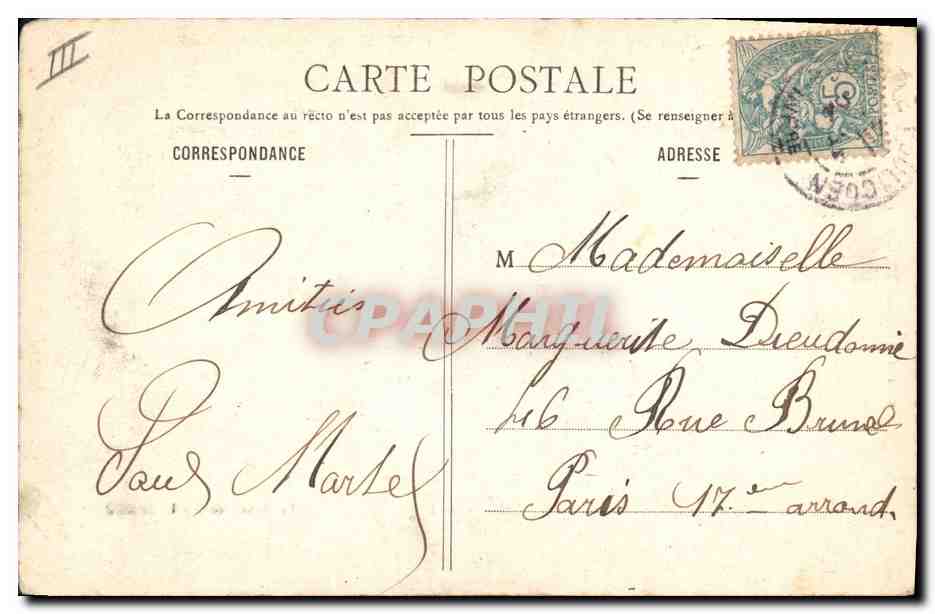 III
CARTE POSTALE
La Correspondance au recto n'est pas acceptée par tous les pays étrangers. (Se renseigner à
CORRESPONDANCE
ADRESSE
5
Amitiés
Paul Martel
M Mademoiselle
Marguerite Dieudonné
46 Rue Brunel
Paris 17.em arrond.
CPAPHIL